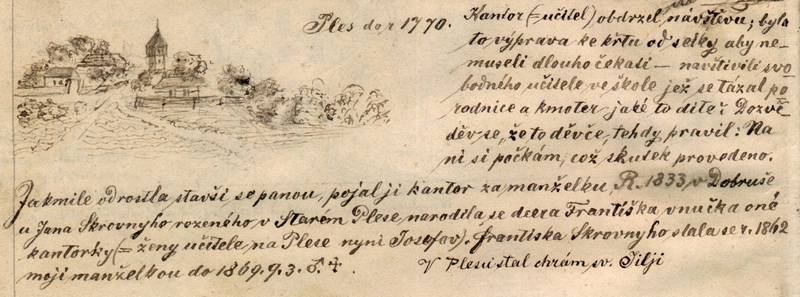 Ples do r 1770. Kantor (= učitel) obdržel návštěvu; byla
to výprava ke křtu od selky aby ne-
museli dlouho čekati — navštívili svo-
bodného učitele ve škole jež se tázal po
rodnice a kmoter jaké to dítě? Dozvě-
děv se, že to děvče, tehdy pravil: Na
ni si počkám, což skutek provedeno.
Jakmile odrostla stavši se panou, pojal ji kantor za manželku. R. 1833 v Dobruše
u Jana Skrovnyho rozeného v Starém Plese narodila se dcera Františka vnučka oné
kantorky (= ženy učitele, na Plese nyni Josefov). Frantiska Skrovnyho stala se r. 1862
moji manželkou do 1869. 9. 3.
V Plesu stal chrám sv. Jilji